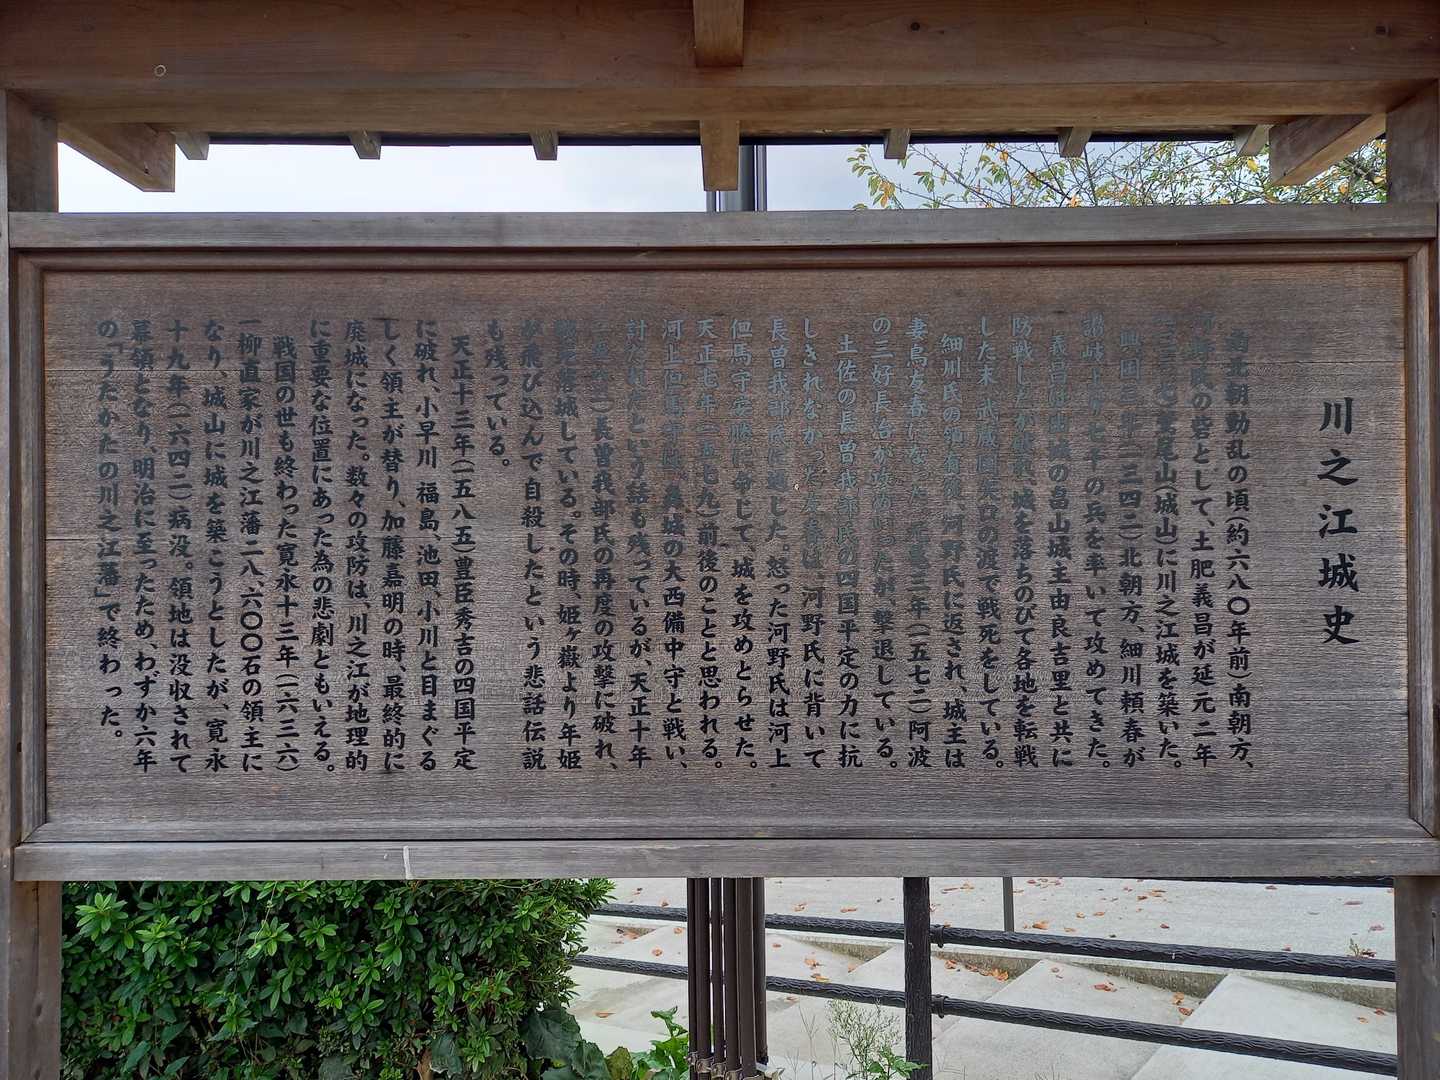 川之江城史
南北朝動乱の頃(約六八〇年前)南朝方、
河野氏の砦として、土肥義昌が延元二年
一三三七鷲尾山(城山)に川之江城を築いた。
興国三年(一三四二)北朝方、細川頼春が
讃岐より七千の兵を率いて攻めてきた。
義昌は由城の畠山城主由良吉里と共に
防戦したが破れ、城を落ちのびて各地を転戦
した末、武蔵国矢口の渡で戦死をしている。
細川氏の領有後、河野氏に返され、城主は
妻鳥友春になった。元亀三年(一五七二)阿波
の三好長治が攻め入ったが、撃退している。
土佐の長曽我部氏の四国平定の力に抗
しきれなかった友春は、河野氏に背いて
長曽我部氏に通じた。怒った河野氏は河上
但馬守安勝に命じて、城を攻めとらせた。
天正七年(一五七九)前後のことと思われる。
河上但馬守は、轟城の大西備中守と戦い、
討たれたという話も残っているが、天正十年
(一五八二)長曽我部氏の再度の攻撃に破れ、
遂に落城している。その時、姫ヶ嶽より年姫
が飛び込んで自殺したという悲話伝説
も残っている。
天正十三年(一五八五)豊臣秀吉の四国平定
に破れ、小早川、福島、池田、小川と目まぐる
しく領主が替り、加藤嘉明の時、最終的に
廃城になった。数々の攻防は、川之江が地理的
に重要な位置にあった為の悲劇ともいえる。
戦国の世も終わった寛永十三年(一六三六)
一柳直家が川之江藩二八、六〇〇石の領主に
なり、城山に城を築こうとしたが、寛永
十九年(一六四二)病没。領地は没収されて
幕領となり、明治に至ったため、わずか六年
の「うたかたの川之江藩」で終わった。